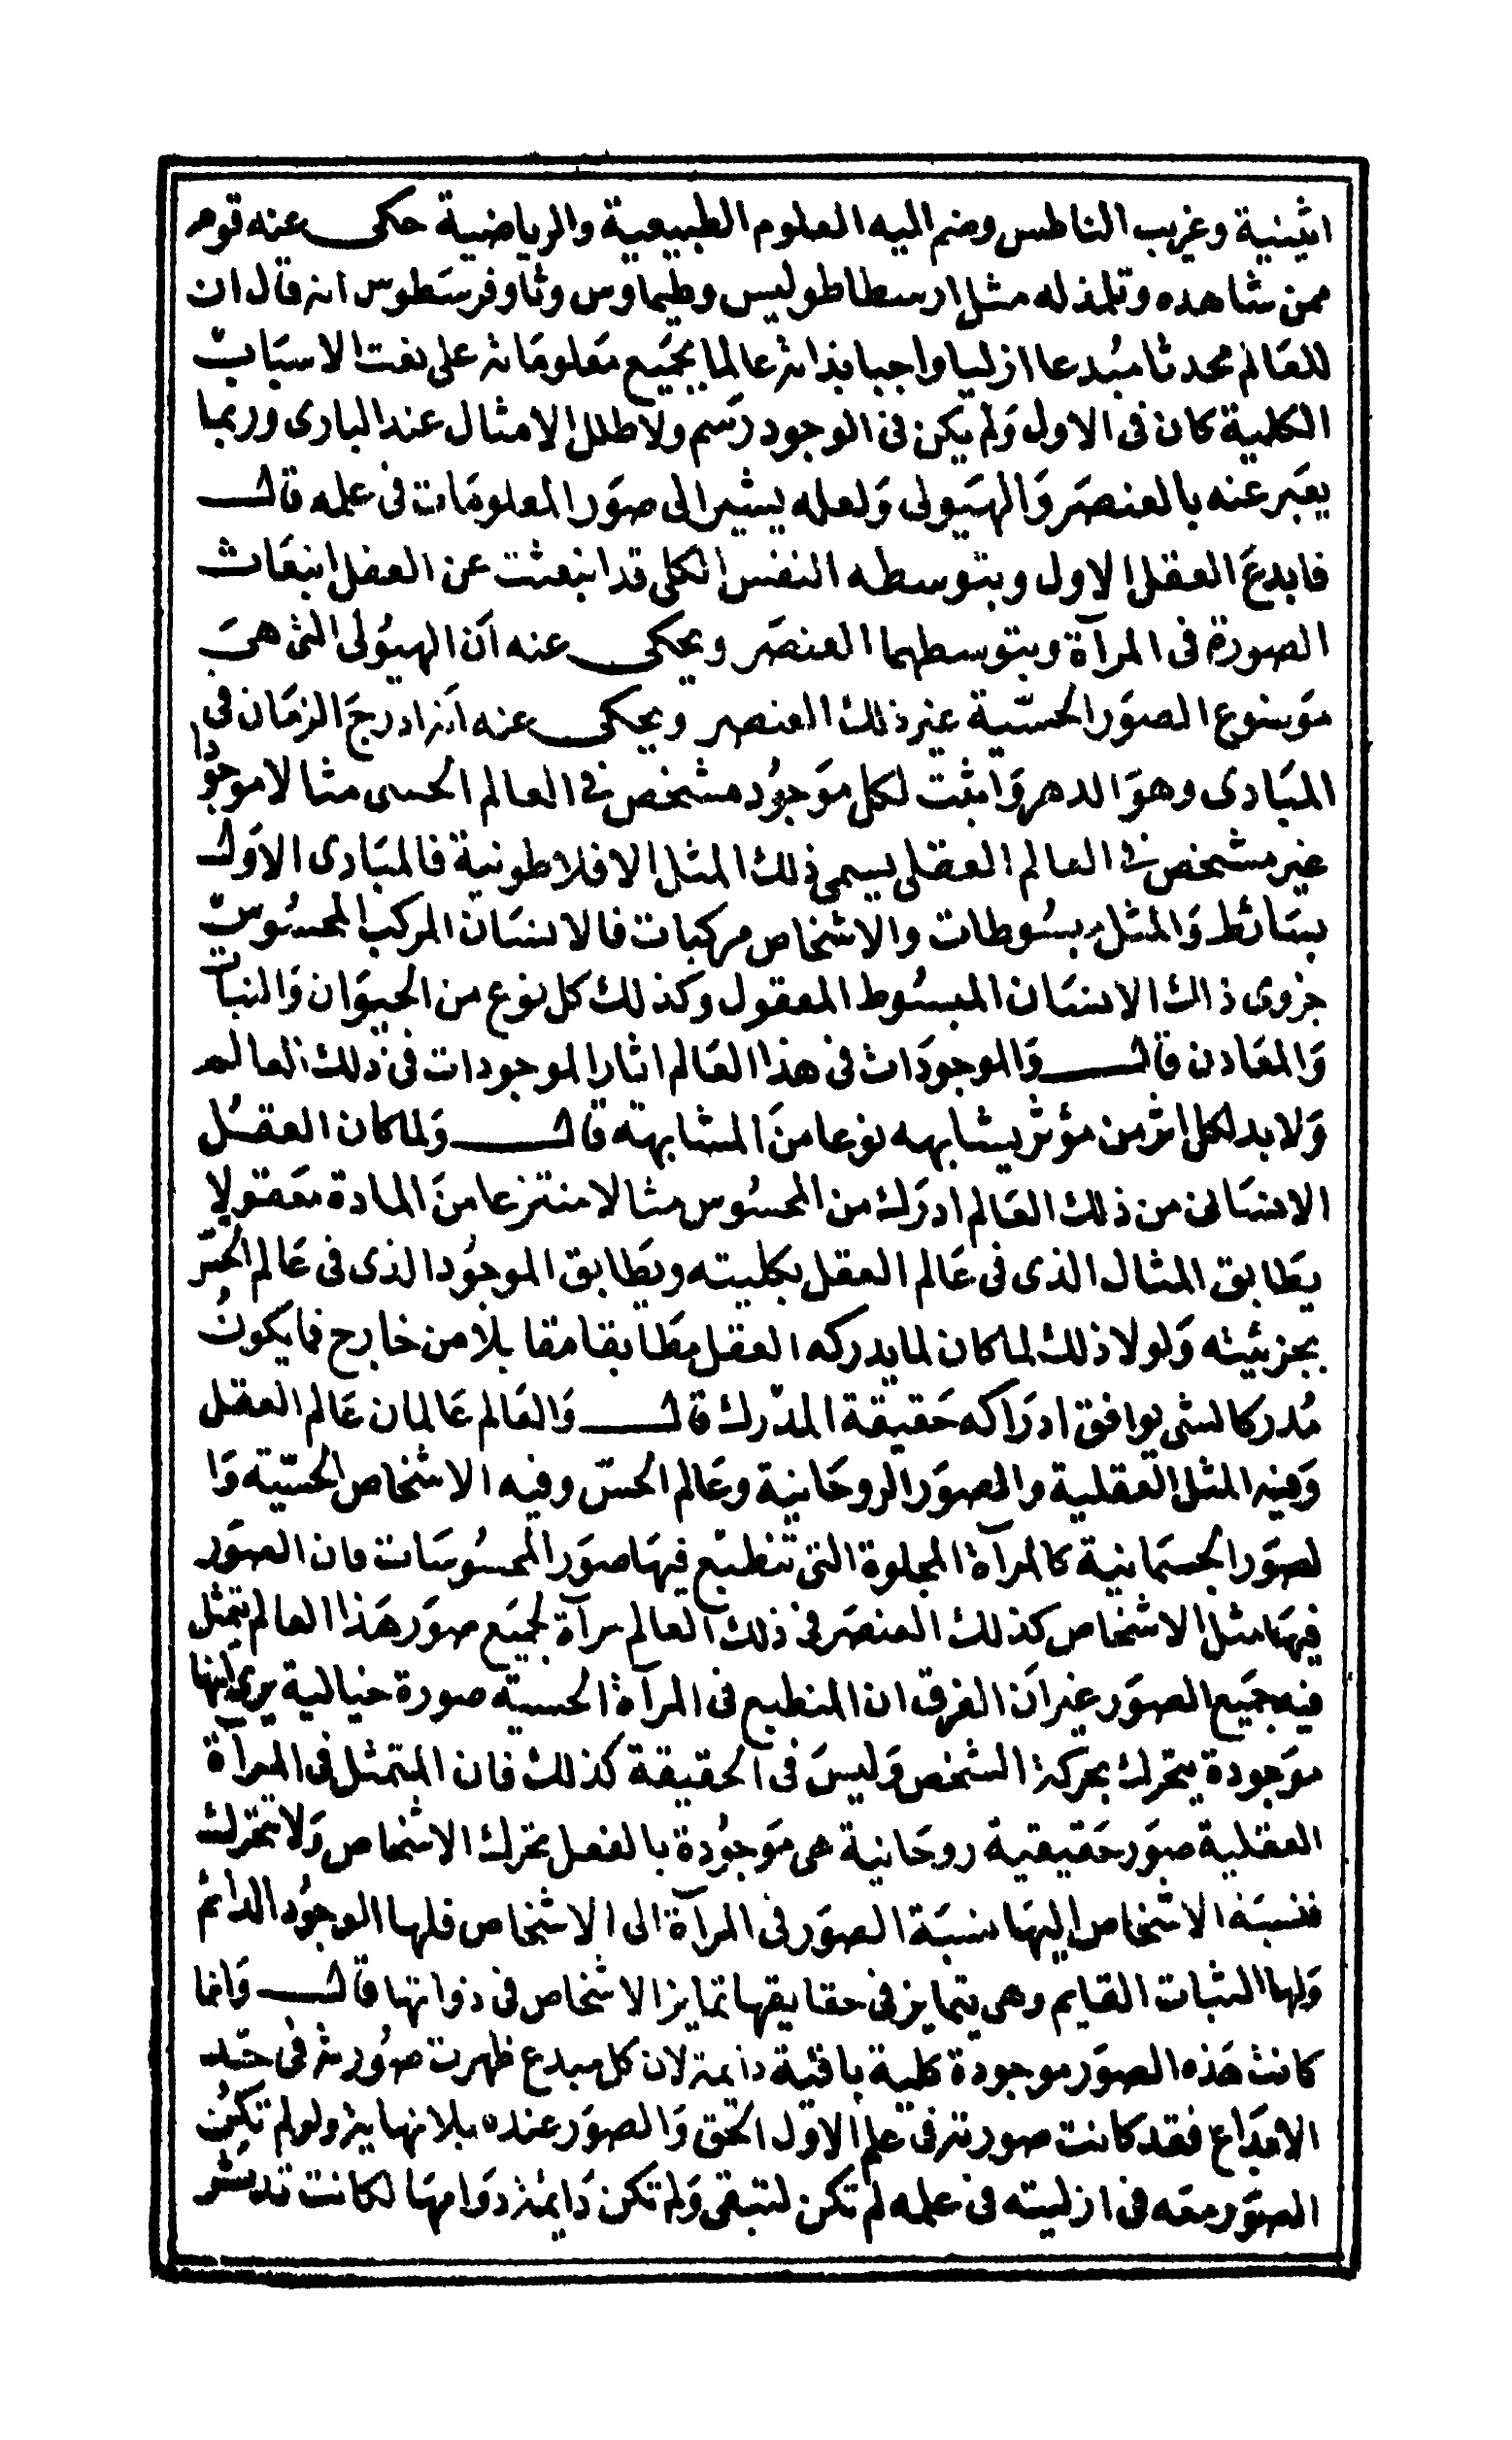 اثينية وغريب الناطس وضم اليه العلوم الطبيعية والرياضية حكى عنه قوم
ممن شاهده وتلمذ له مثل ارسطاطوليس وطيماوس وثاوفرسطوس انه قال ان
للعَالم محدثا مبُدعا ازليا واجبا بذاته عالما بجَميع مَعلومَاته على نعت الاسبَاب
الكلية كان فى الاول وَلم يكن فى الوجود رَسم ولا طلل الا مثال عند البارى وربما
يعَبر عنه بالعنصَر وَالهيَولى وَلعله يشير الى صوَر المعلومَات فى علمه قال
فابدعَ العقل الاول وبتوسطه النفس الكلى قد انبعثت عن العقل انبعَاث
الصورة فى المرآة وبتوسطهما العنصَر ويحكى عنه اَن الهيوُلى التى هىَ
موَضوع الصوَر الحسّية غير ذلك العنصر ويحكى عنه اَنه ادرجَ الزمَان فى
المبَادى وهوَ الدهر وَاثبت لكل موَجوُد مشخص فى العالم الحسى مثالا موجوُدا
غير مشخص فى العالم العقلى يسمى ذلك المثل الافلاطونية فالمبَادى الاوَل
بسَائط وَالمثل مبسُوطات والاشخاص مركبات فالانسَان المركب المحسُوس
جزوى ذاك الانسَان المبسُوط المعقول وَكذلك كل نوع من الحيوَان وَالنبات
وَالمعَادن قال وَالموجودَات فى هذا العَالم اثار الموجودات فى ذلك العالم
وَلا بد لكل اثر من مؤثر يشابهه نوعا منَ المشابهة قال وَلما كان العقل
الانسَانى من ذلك العَالم ادرَك من المحسُوس مثالا منتزعا منَ المادة معَقولا
يطَابق المثال الذى فى عَالم العقل بكليته ويطَابق الموجوُد الذى فى عَالم الحسّ
بجزئيته وَلولا ذلك لما كان لما يدركه العقل مطَابقا مقابلا من خارج فما يكونُ
مُدركا لشى يوافق ادرَاكه حَقيقة المدّرك قال وَالعَالم عَالمان عَالم العقل
وَفيه المثل العقلية والصوَر الروحَانية وعَالم الحسّ وفيه الاشخاص الحسّية وَا
لصوَر الجسمَانية كالمرآة المجلوة التى تنطبع فيهَا صوَر المحسُوسَات فان الصوَر
فيهَا مثل الاشخاص كذلك العنصَر فى ذلك العالم مرآة لجميَع صوَر هَذا العالم يتمثل
فيه جميَع الصوَر غير اَن الفرق ان المنطبع فى المرآة الحسية صورة خيالية يرى انها
موَجودة يتحرك بحركة الشخص وَليسَ فى الحقيقة كذلك فان المتمثل فى المرآة
العقلية صوَر حَقيقية روحَانية هى موَجوُدة بالفعل تحرك الاشخاص وَلا تتحرك
فنسبَة الاشخاص اليهَا نسبَة الصوَر فى المرآة الى الاشخاص فلها الوجوُد الدائم
وَلها الثبات القايم وهى يتمايز فى حقايقها تمايز الاشخاص فى ذواتها قال وَانما
كانت هَذه الصوَر موجودة كلية باقية دائمة لان كل مبدع ظهرت صُورته فى حَد
الابدَاع فقد كانت صورته فى علم الاول الحق وَالصوَر عنده بلا نهاية ولو لم تكُن
الصوَر معَه فى ازليته فى علمه لم تكن لتبقى وَلم تكن دَايمة دوَامهَا لكانت تدثر